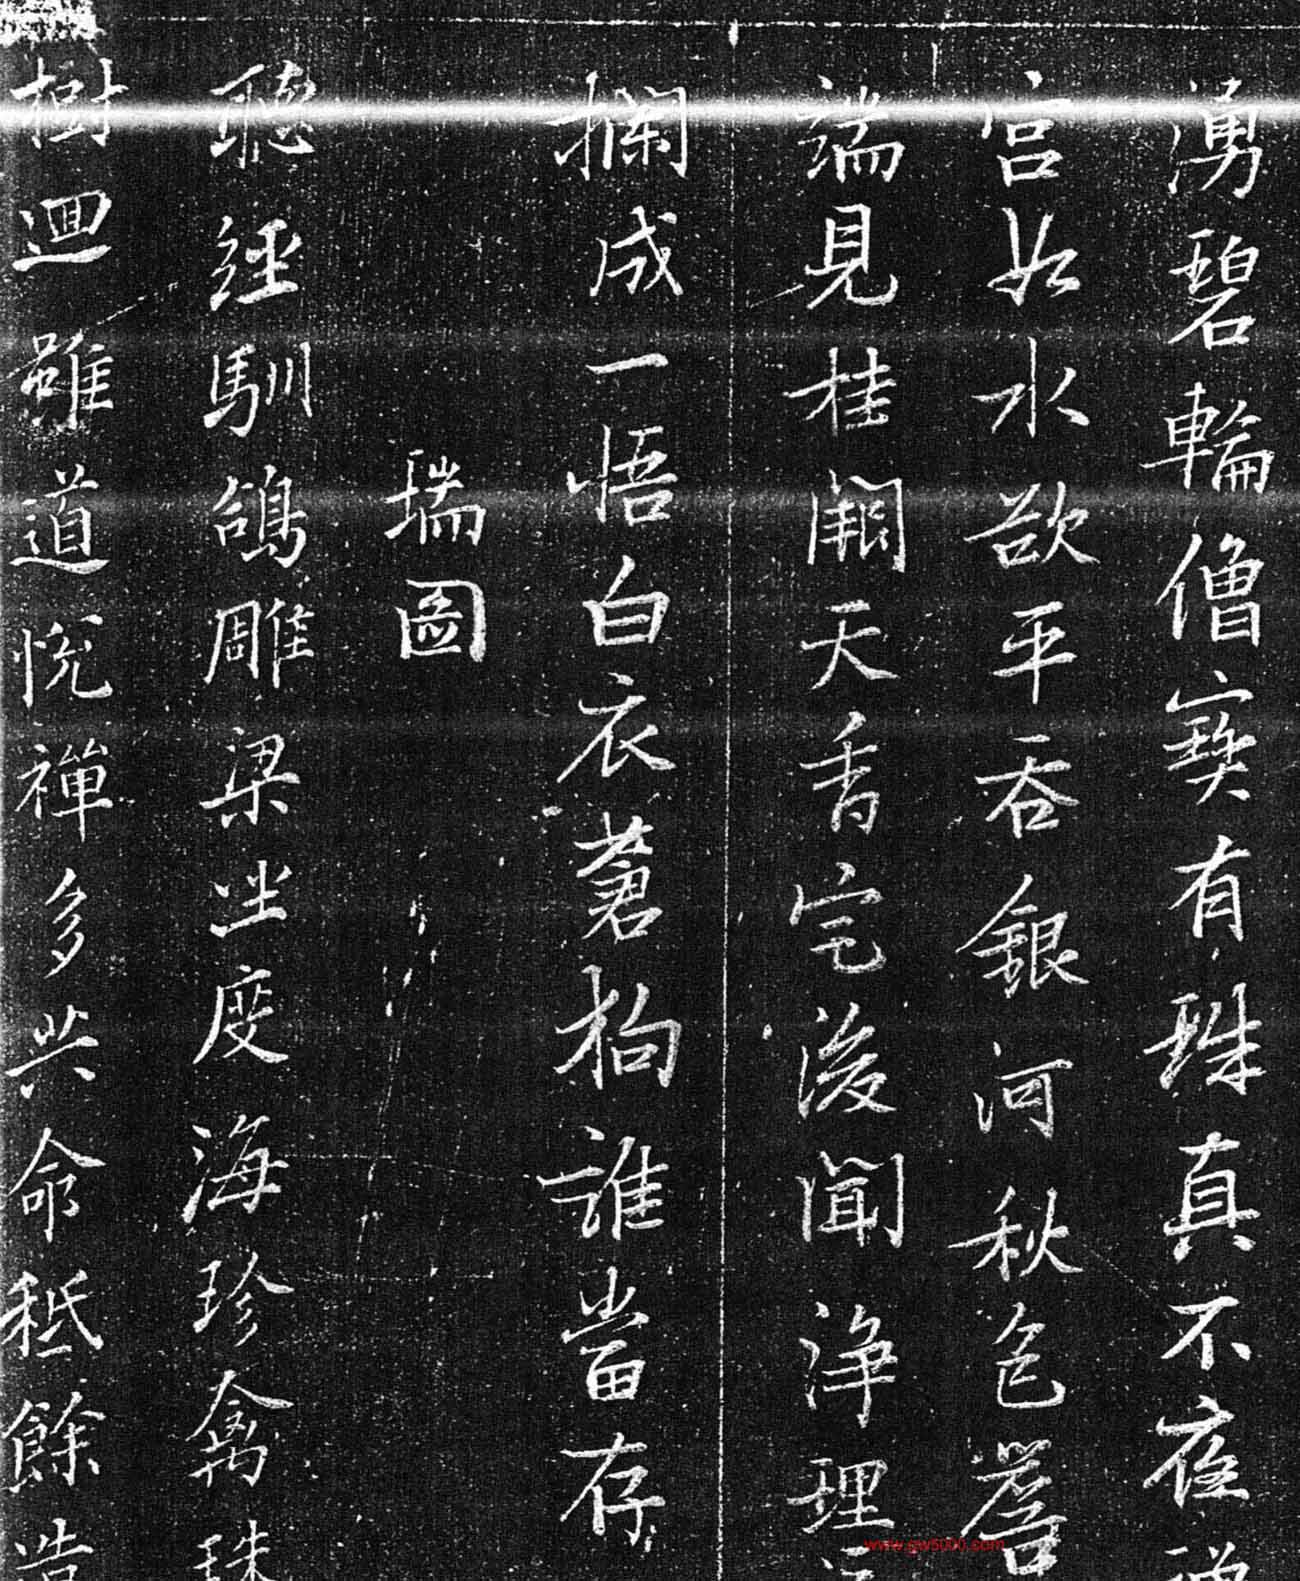 湧碧輪僧寶有珠真不夜禪
宮如水欲平吞銀河秋色簷
端見桂闕天香定後聞淨理
拋成一悟白衣蒼狗誰當存
瑞圖
聽經馴鴿雕梁坐度海珍禽珠
樹迴雖道悅禪多共命秪餘造
www.gw5000.com